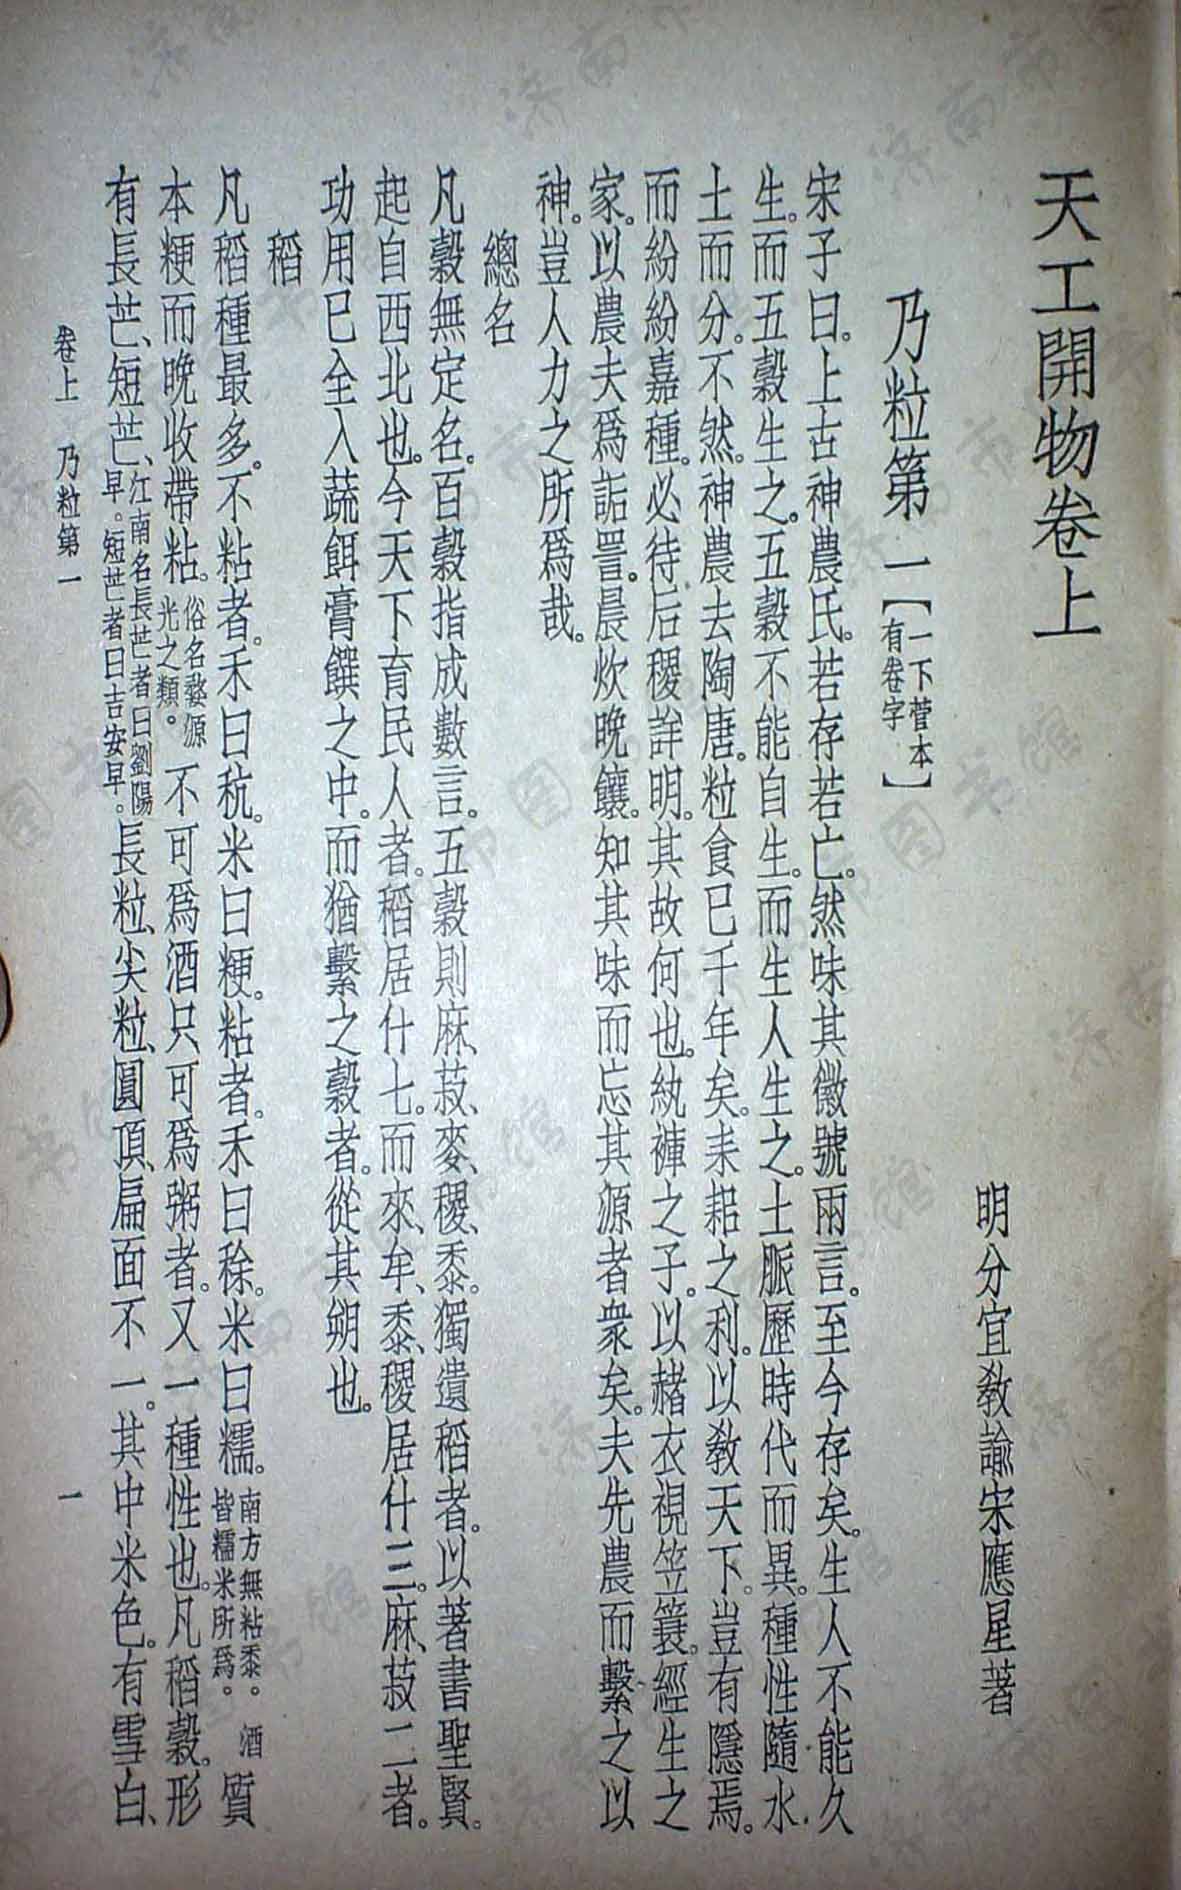 天工開物卷上
明分宜教諭宋應星著
乃粒第一【一下菅本有卷字】
宋子曰。上古神農氏。若存若亡。然味其徽號兩言。至今存矣。生人不能久
生。而五穀生之。五穀不能自生。而生人生之。土脈歷時代而異。種性隨水
土而分。不然。神農去陶唐。粒食已千年矣。耒耜之利。以教天下。豈有隱焉。
而紛紛嘉種。必待后稷詳明。其故何也。紈褲之子。以赭衣視笠簑。經生之
家。以農夫爲詬詈。晨炊晚饟。知其味而忘其源者衆矣。夫先農而繫之以
神。豈人力之所爲哉。
總名
凡穀無定名。百穀指成數言。五穀則麻、菽、麥、稷、黍。獨遺稻者。以著書聖賢。
起自西北也。今天下育民人者。稻居什七。而來、牟、黍、稷居什三。麻、菽二者。
功用已全入蔬餌膏饌之中。而猶繫之穀者。從其朔也。
稻
凡稻種最多。不粘者。禾曰秔。米曰粳。粘者。禾曰稌。米曰糯。南方無粘黍。酒皆糯米所爲。質
本粳而晚收帶粘。俗名婺源光之類。不可爲酒只可爲粥者。又一種性也。凡稻穀。形
有長芒、短芒、江南名長芒者曰劉陽早。短芒者曰吉安早。長粒、尖粒、圓頂、扁面不一。其中米色。有雪白、
卷上 乃粒第一 一